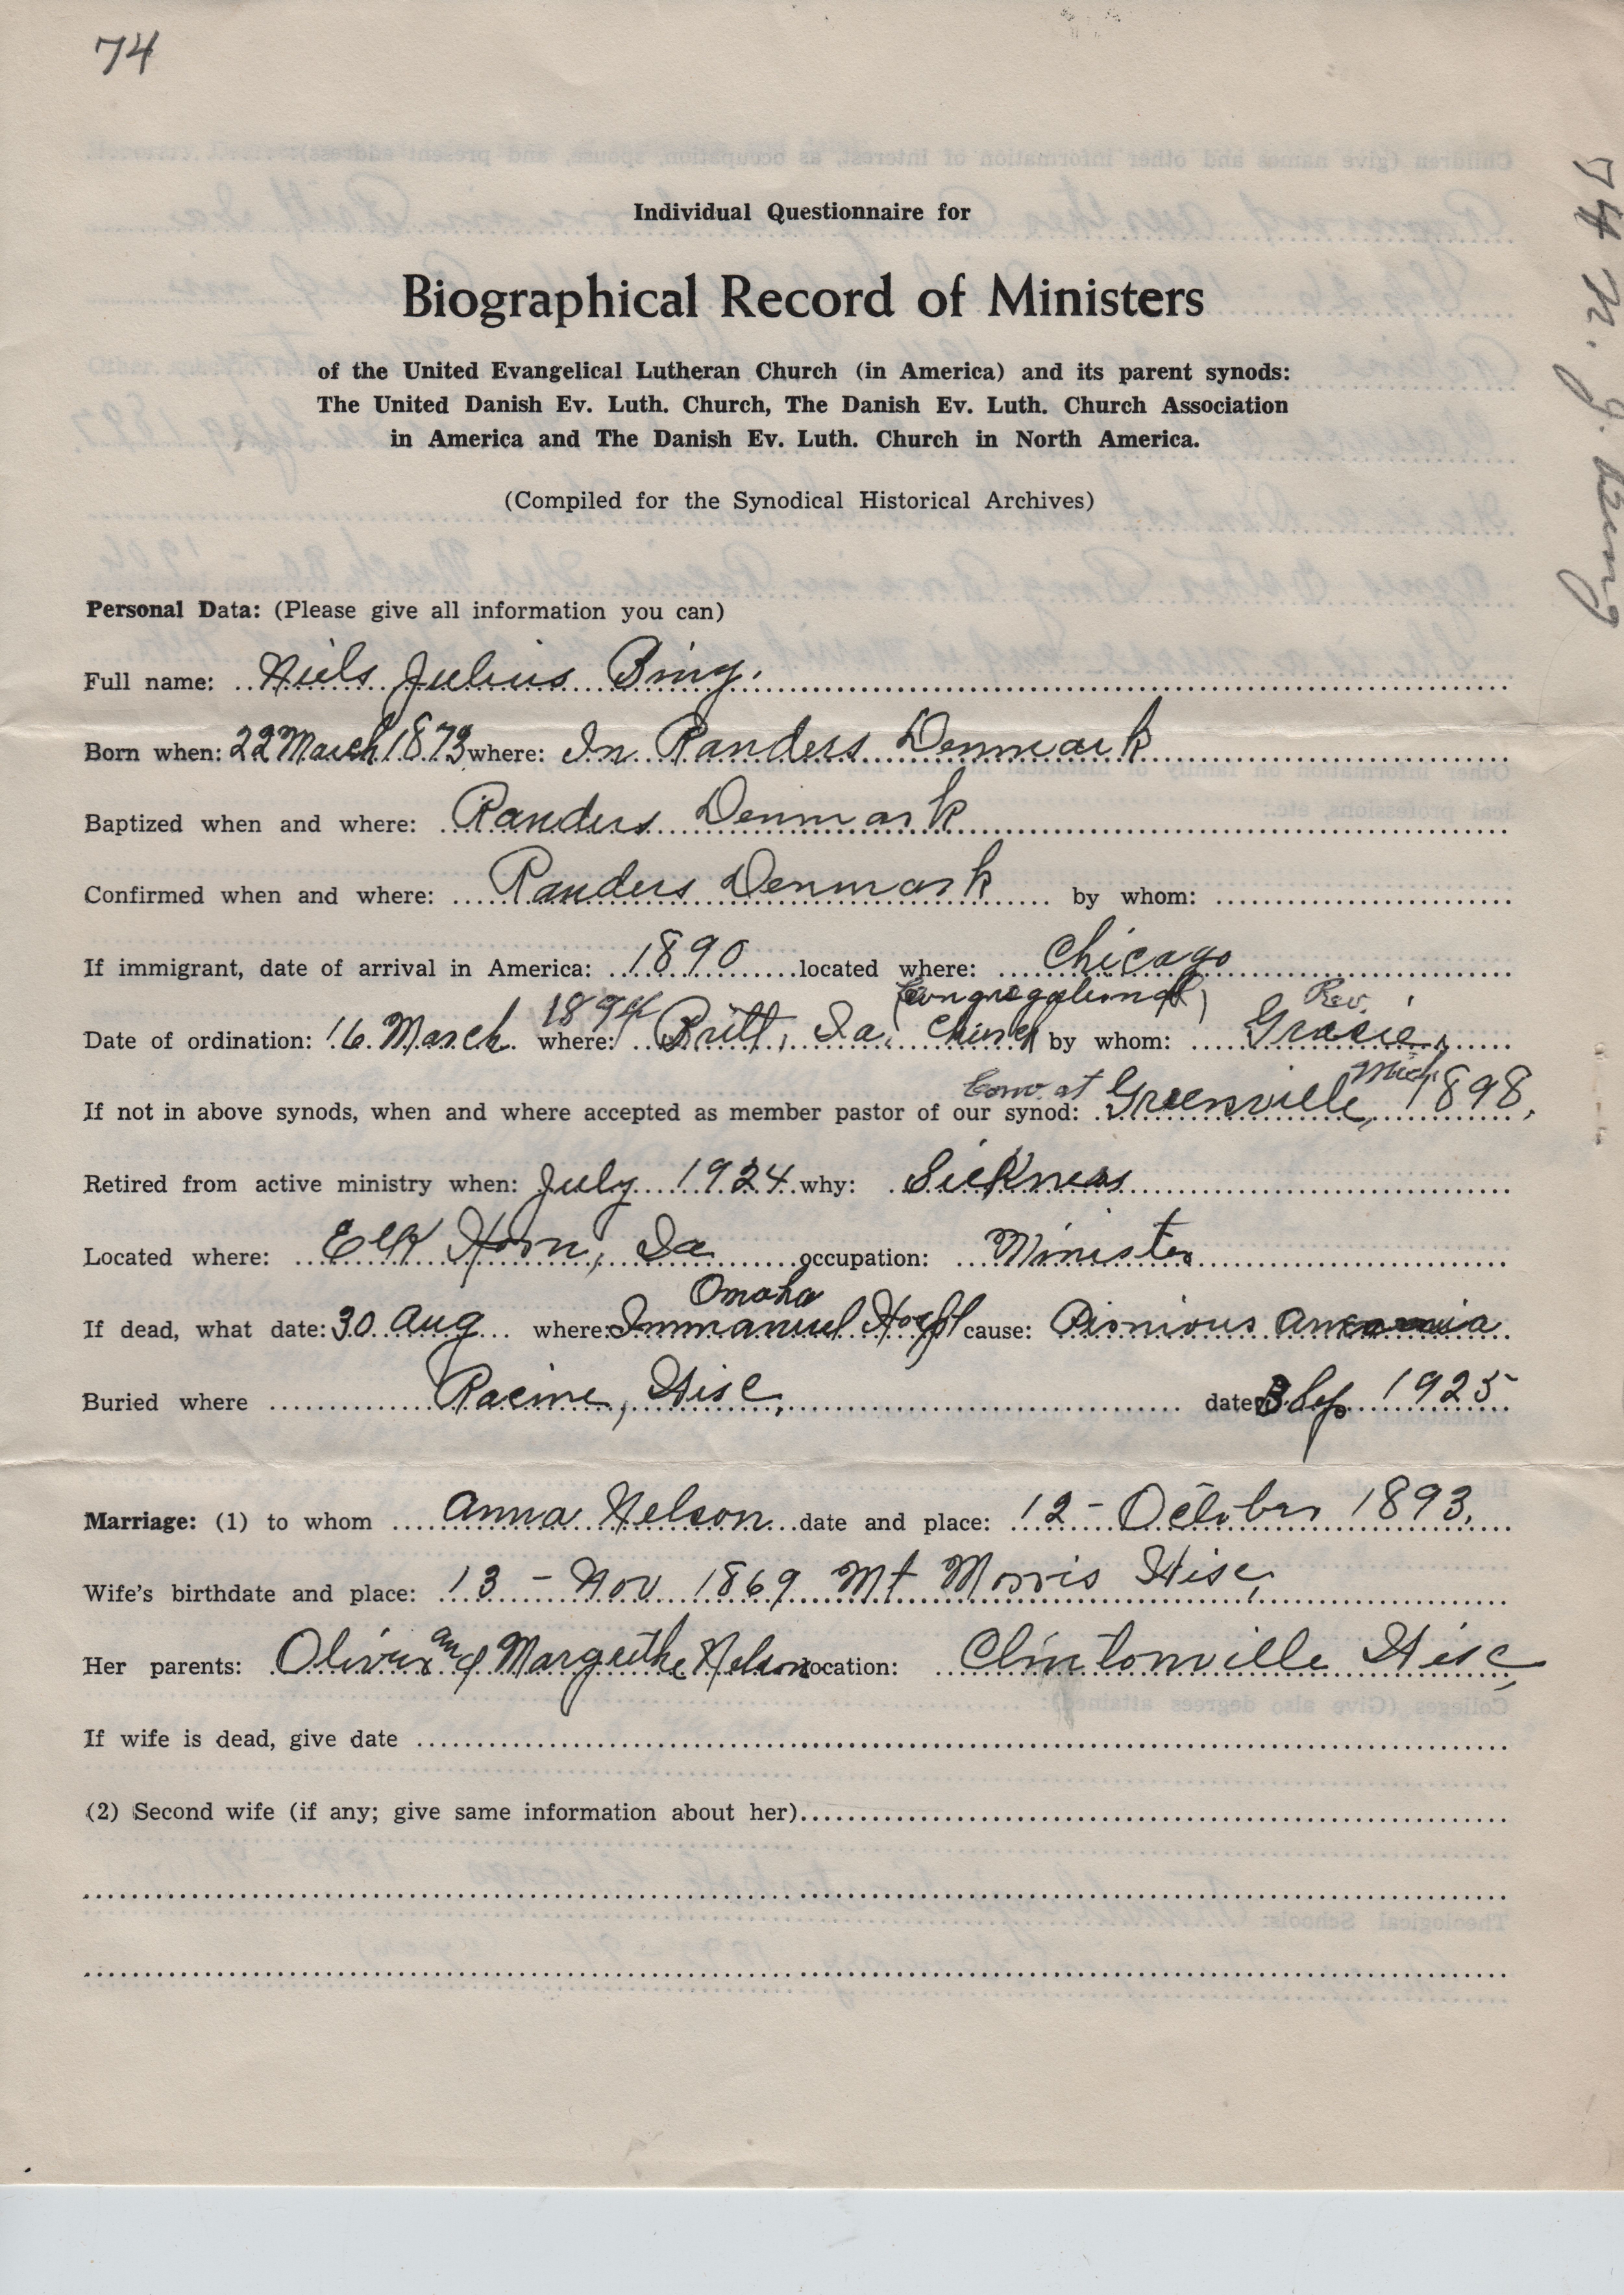 74
74 N. J. Bing
Individual Questionnaire for
Biographical Record of Ministers
of the United Evangelical Lutheran Church (in America) and its parent synods:
The United Danish Ev. Luth. Church, The Danish Ev. Luth. Church Association
in America and The Danish Ev. Luth. Church in North America.
(Compiled for the Synodical Historical Archives)
Personal Data: (Please give all information you can)
Full name: Niels Julius Bing.
Born when: 22 March 1873 where: In Randers Denmark
Baptized when and where: Randers Denmark
Confirmed when and where: Randers Denmark by whom:
If immigrant, date of arrival in America: 1890 located where: Chicago
Date of ordination: 16 March 1894 where: Britt, Ia. (Congregational) Church by whom: Rev. Gracie,
If not in above synods, when and where accepted as member pastor of our synod: Conv. at Greenville, Mich, 1898,
Retired from active ministry when: July 1924 why: Sickness
Located where: Elk Horn, Ia occupation: Minister
If dead, what date: 30 Aug where: Immanuel Hospt Omaha cause: Pirnious
Buried where Racine, Wisc, date 3 Sep 1925
Marriage: (1) to whom Anna Nelson date and place: 12 - October 1893.
Wife's birthdate and place: 13 - Nov 1869 Mt Morris Wisc,
Her parents: Oliver and Margrithe Nelson location: Clintonville Wisc,
If wife is dead, give date
(2) Second wife (if any; give same information about her)